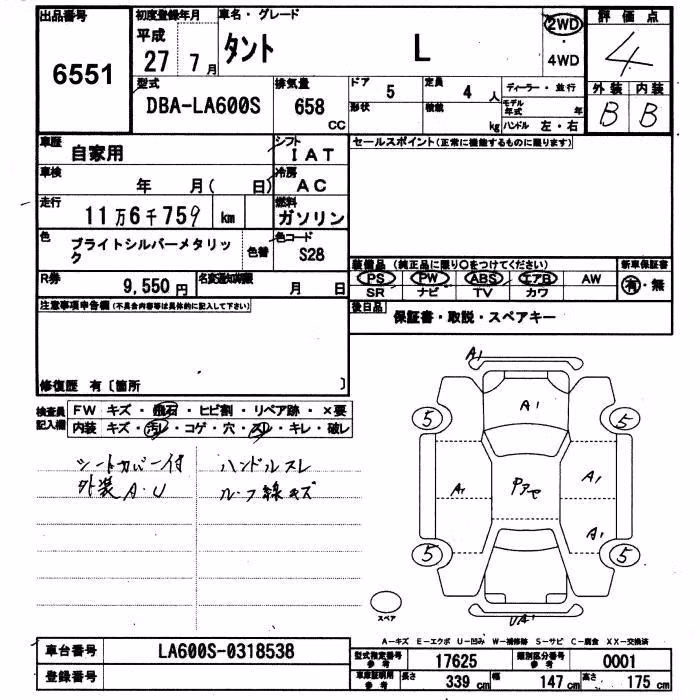 出品番号 初度登録年月 車名・グレード 2WD 評価点
6551 平成 27年 7月 タント L 4WD 4
型式 排気量 ドア 5 定員 4人 ディーラー・並行 外装 内装
DBA-LA600S 658 CC 形状 積載 kg モデル年式 年 ハンドル 左・右 B B
車歴 自家用 シフト IAT セールスポイント(正常に機能するものに限ります)
車検 年 月( 日) 冷房 AC
走行 11万6千759 km 燃料 ガソリン
色 ブライトシルバーメタリック 色替 色コード S28
装備品 (純正品に限り〇をつけてください) 新車保証書
R券 9,550円 名変通知期限 月 日 PS PW ABS エアB AW 有・無
SR ナビ TV カワ
注意事項申告欄(不具合内容等は具体的に記入して下さい) 後日品 保証書・取説・スペアキー
修復歴 有〔箇所 〕
検査員記入欄 FW キズ・飛石・ヒビ割・リペア跡・×要
内装 キズ・汚レ・コゲ・穴・スレ・キレ・破レ
シートカバー付 ハンドルスレ
外装A・U ルーフ線キズ
A1
A1
5 5
A1 A1
A1
5 5
スペア UA1
A-キズ E-エクボ U-凹み W-補修跡 S-サビ C-腐食 XX-交換済
車台番号 LA600S-0318538 型式指定番号 参考 17625 類別区分番号 参考 0001
登録番号 車庫証明用 参考 長さ 339cm 幅 147cm 高さ 175cm